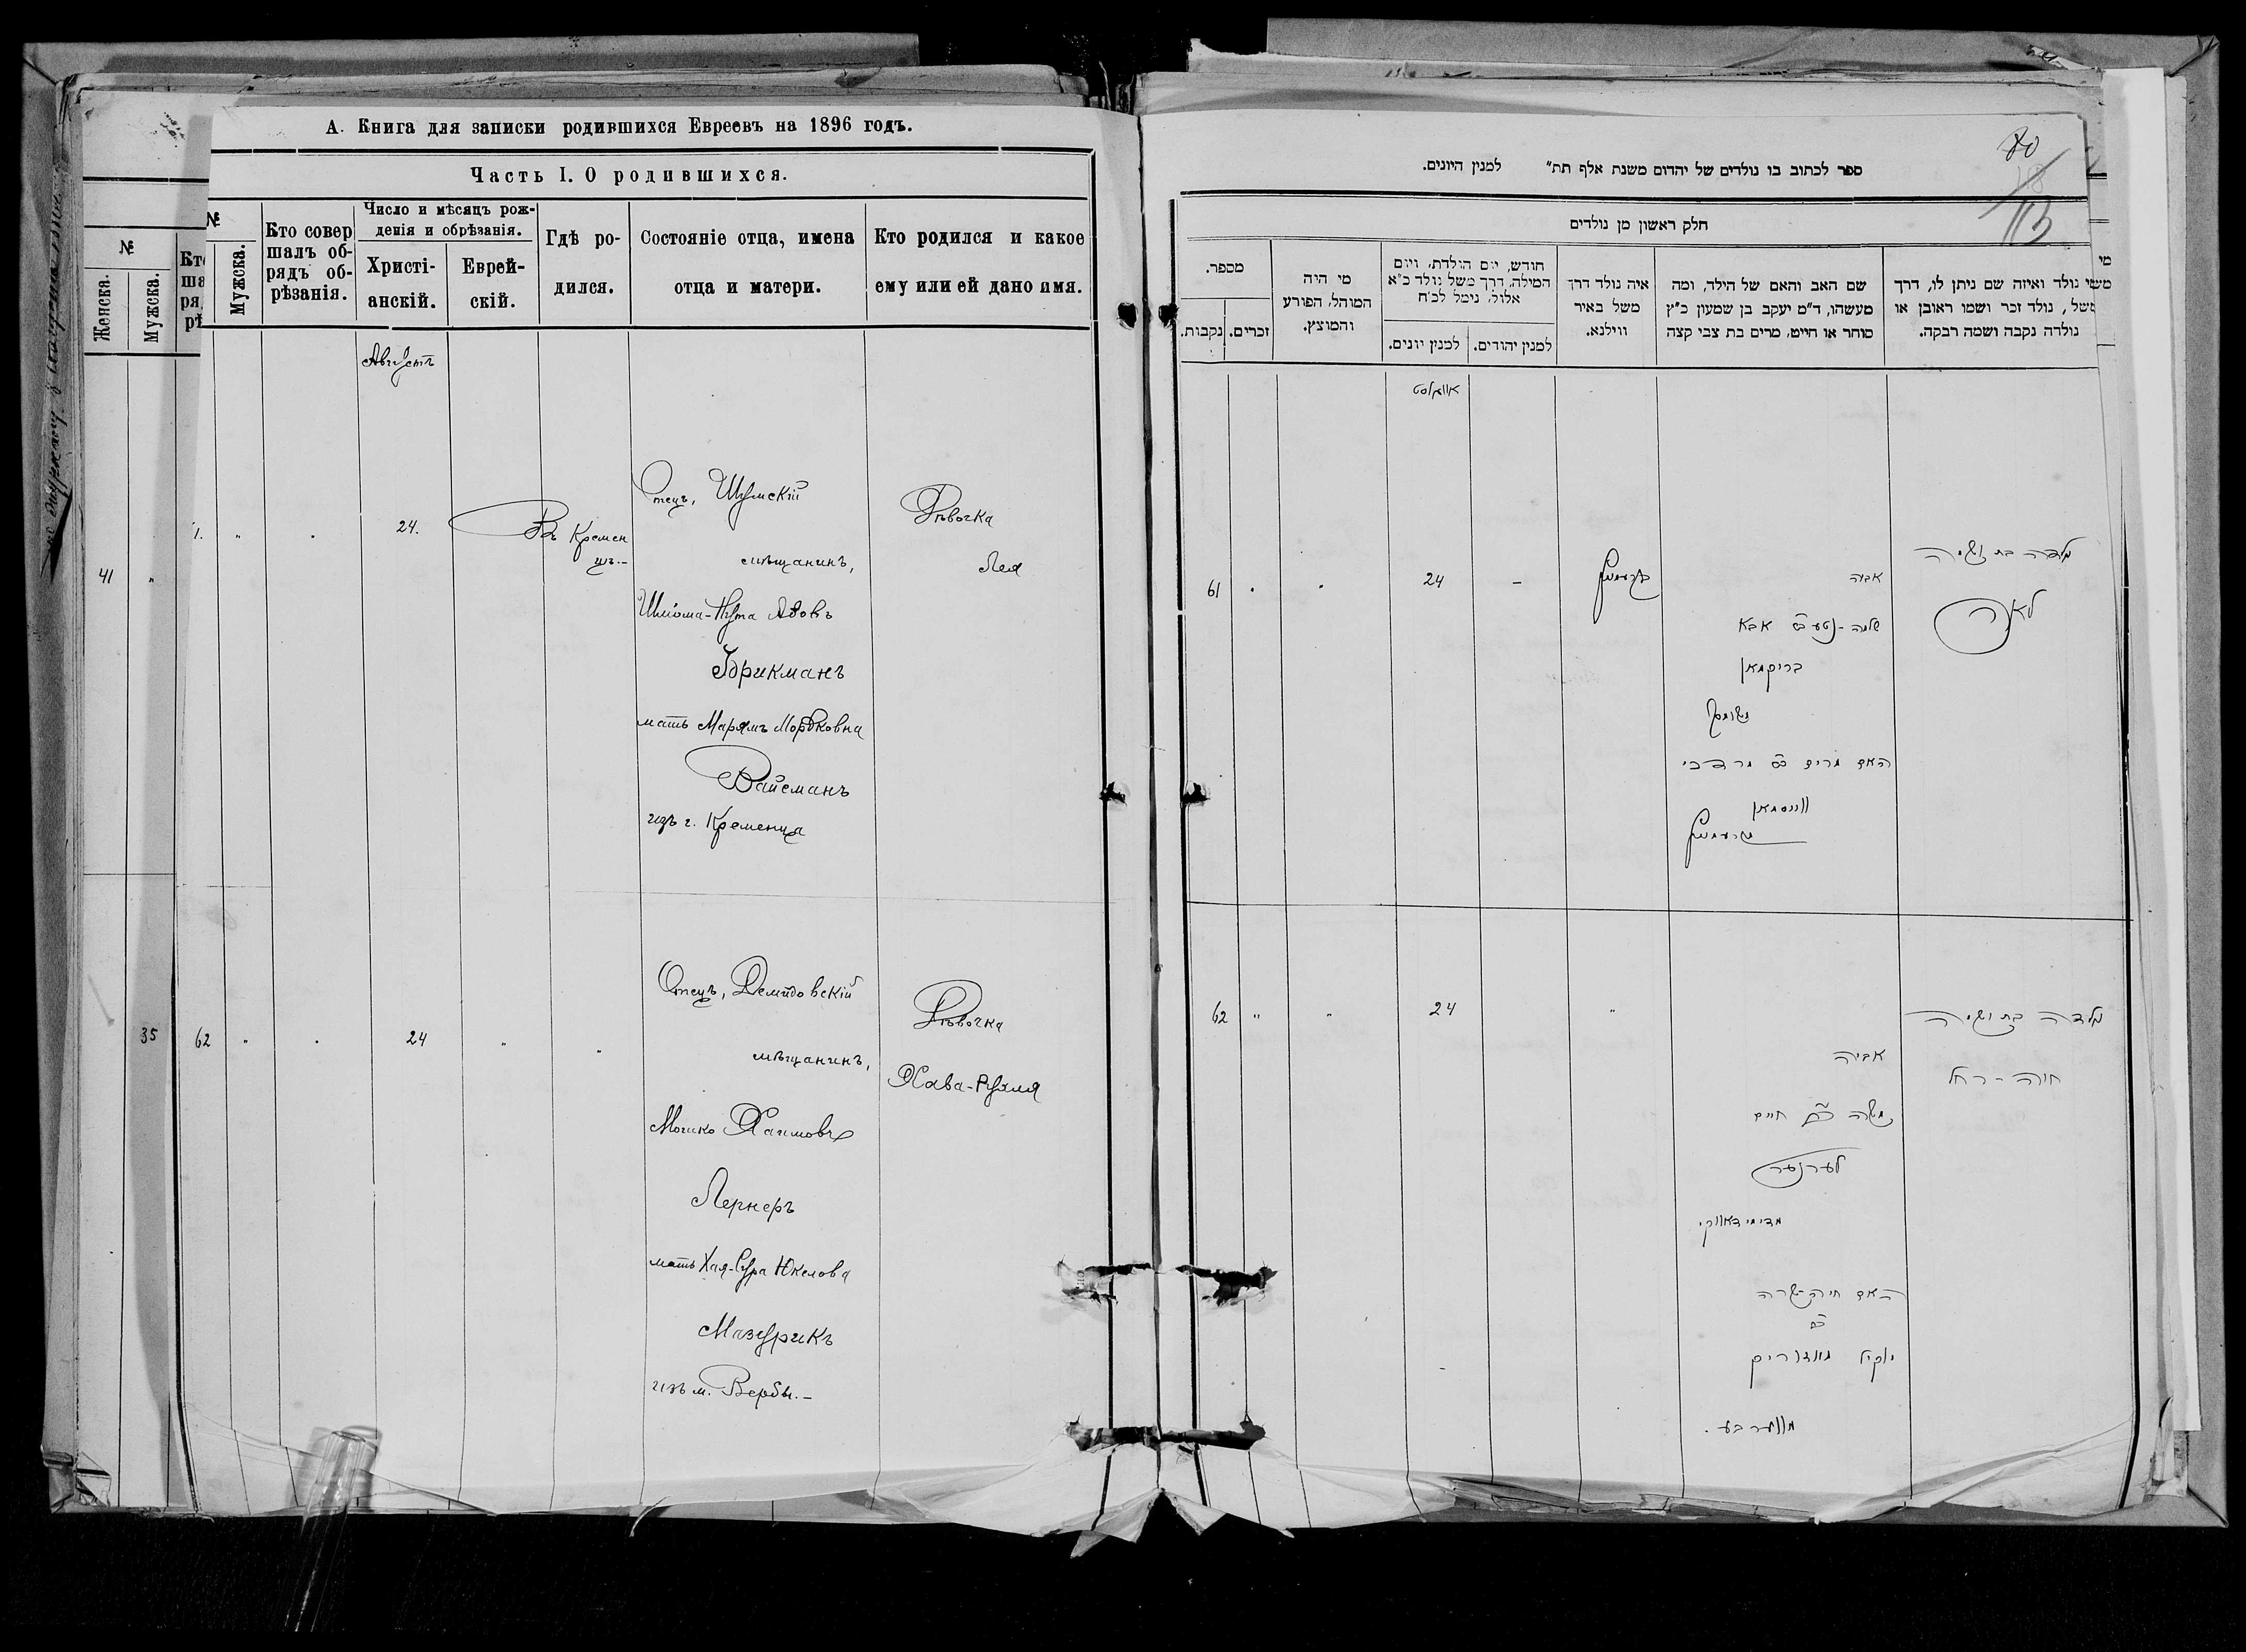 А. Книга для записки родившихся Евреевъ на 1896 годъ.
Часть I. О родившихся.
№
Женска.
Мужска.
№
Мужска.
Кто совер
шалъ об-
рядъ об-
рѣзанія.
Число и мѣсяцъ рож-
денія и обрѣзанія.
Христі-
анскій.
Еврей-
скій.
Гдѣ ро-
дился.
Состояніе отца, имена
отца и матери.
Кто родился и какое
ему или ей дано имя.
Августъ
41
24.
Въ Кремен
цѣ.-
Отецъ, Шумскій
мѣщанинъ,
Шліома-Нута Абовъ
Брикманъ
мать Маріямъ Мордковна
Вайсманъ
изъ г. Кременца
Дѣвочка
Лея
35
62
24
Отецъ, Демидовскій
мѣщанинъ,
Мошко Хаимовъ
Лернеръ
мать Хая-Сура Юкелова
Мазурикъ
изъ м. Вербы.-
Дѣвочка
Хава-Рухля
80
113
ספר לכתוב בו נולדים של יהדום משנת אלף תת״ למנין היונים.
חלק ראשון מן נולדים
מספר.
נקבות.
זכרים.
מי היה
המוהל, הפורע
והמוצץ.
חודש, יום הולדת, ויום
המילה, דרך משל נולד כ״א
אלול, נימל לכ״ח
למנין יונים.
למנין יהודים.
איה נולד דרך
משל באיר
ווילנא.
שם האב והאם של הילד, ומה
מעשהו, ד״מ יעקב בן שמעון כ״ץ
סוחר או חייט, מרים בת צבי קצה
מי נולד ואיזה שם ניתן לו, דרך
משל, נולד זכר ושמו ראובן או
נולדה נקבה ושמה רבקה.
אווגוסט
61
24
קרעמניץ
אביה
שלמה-נטע ב״ר אבא
בריקמאן
משומסק
האם מרים ב״ר מרדכי
ווייסמאן
מקרעמניץ
לאה
62
24
אביה
משה ב״ר חיים
לערנער
מדימידאווקי
האם חיה-שרה
ב״ר
יוקיל מאזוריק
מווערבע.
חוה-רחל